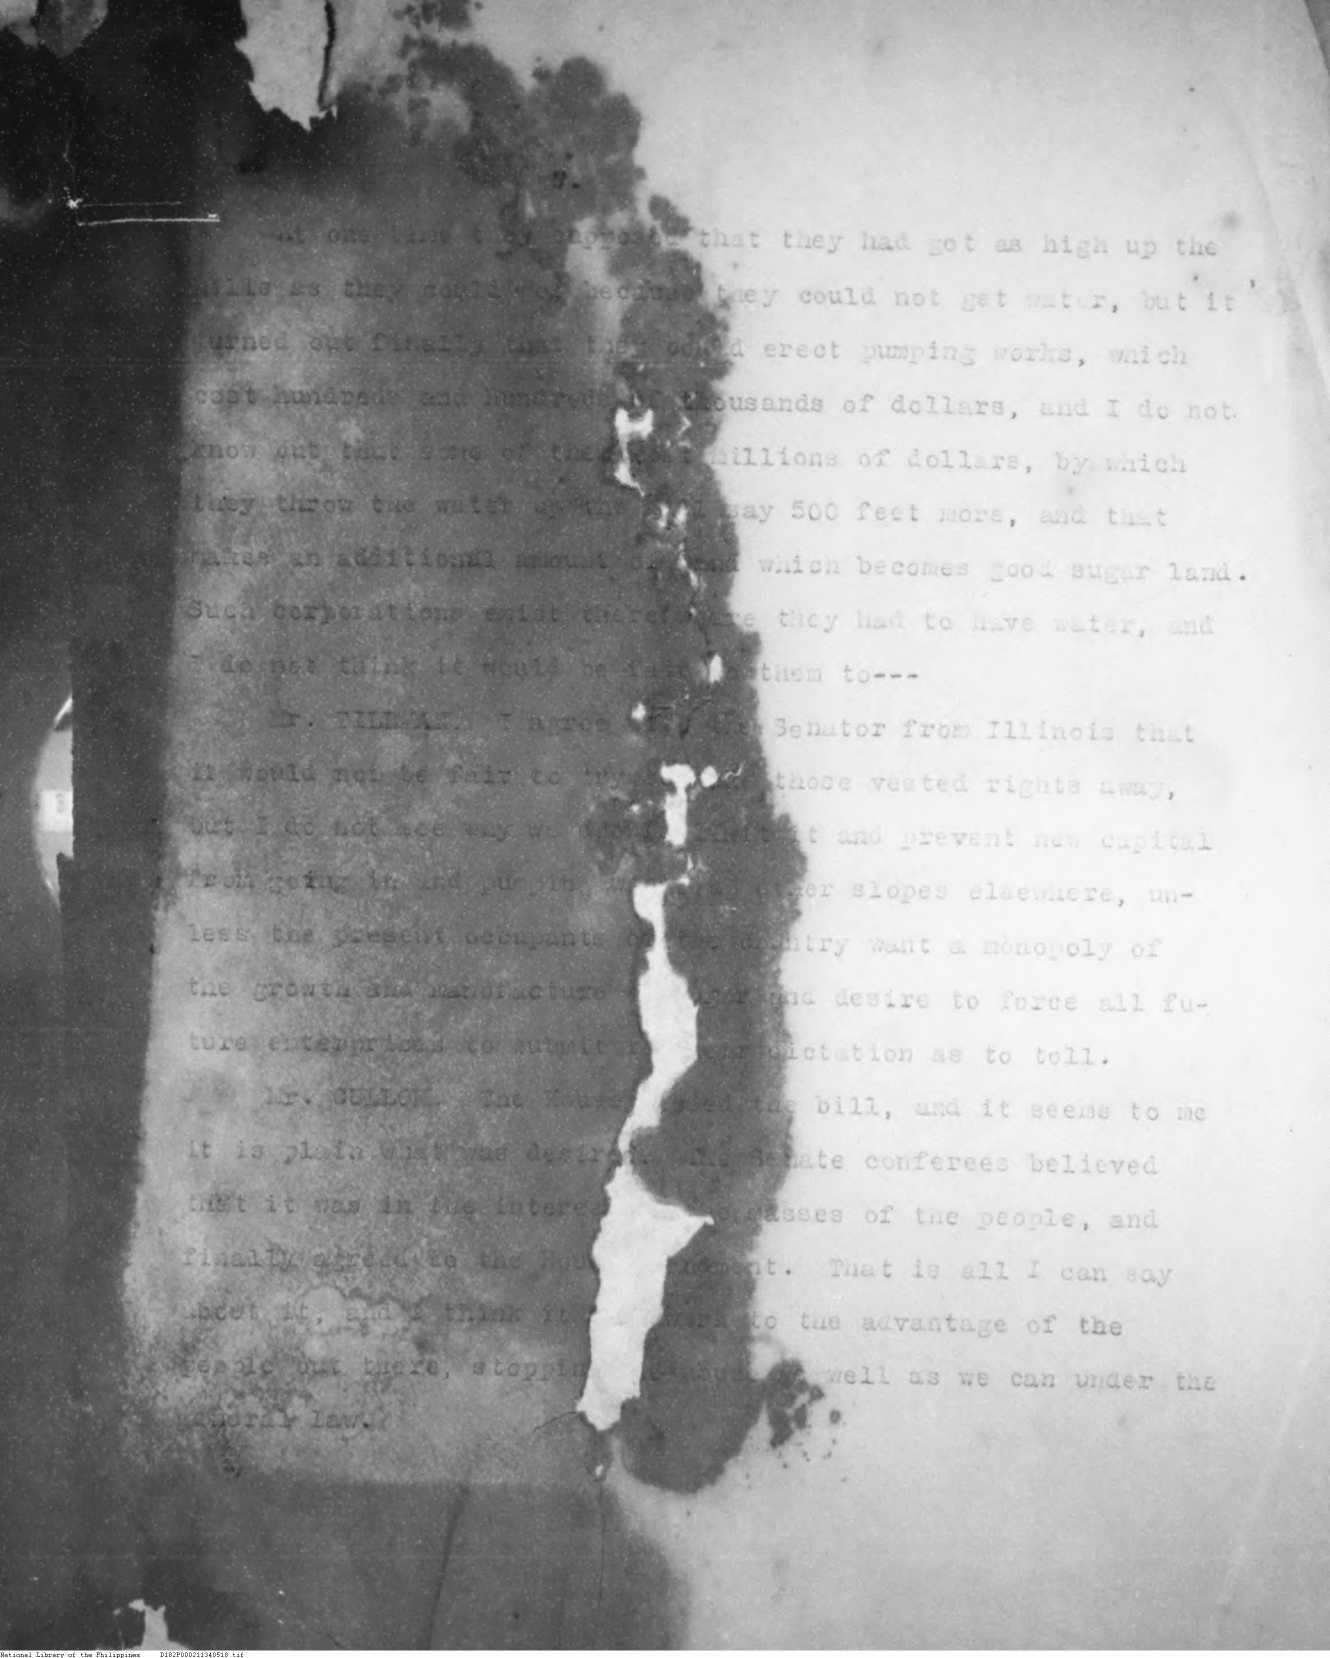 7.
At one time they supposed that they had got as high up the
hills as they could go, because they could not get water, but it
turned out finally that they could erect pumping works, which
cost hundreds and hundreds of thousands of dollars, and I do not
know but that some of them cost millions of dollars, by which
they throw the water up the hill say 500 feet more, and that
makes an additional amount of land which becomes good sugar land.
Such corporations exist therefore they had to have water, and
I do not think it would be fair to them to---
Mr. TILLMAN. I agree with the Senator from Illinois that
it would not be fair to try to take those vested rights away,
but I do not see why we should limit it and prevent new capital
from going in and pumping other slopes elsewhere, un-
less the present occupants of the country want a monopoly of
the growth and manufacture of sugar and desire to force all fu-
ture enterprises to submit to their dictation as to toll.
Mr. CULLOM. The House passed the bill, and it seems to me
it is plain what was desired. The Senate conferees believed
that it was in the interest masses of the people, and
finally agreed to the House amendment. That is all I can say
about it, and I think it will work to the advantage of the
people out there, stopping well as we can under the
general law.
National Library of the Philippines D182P000211340518.tif